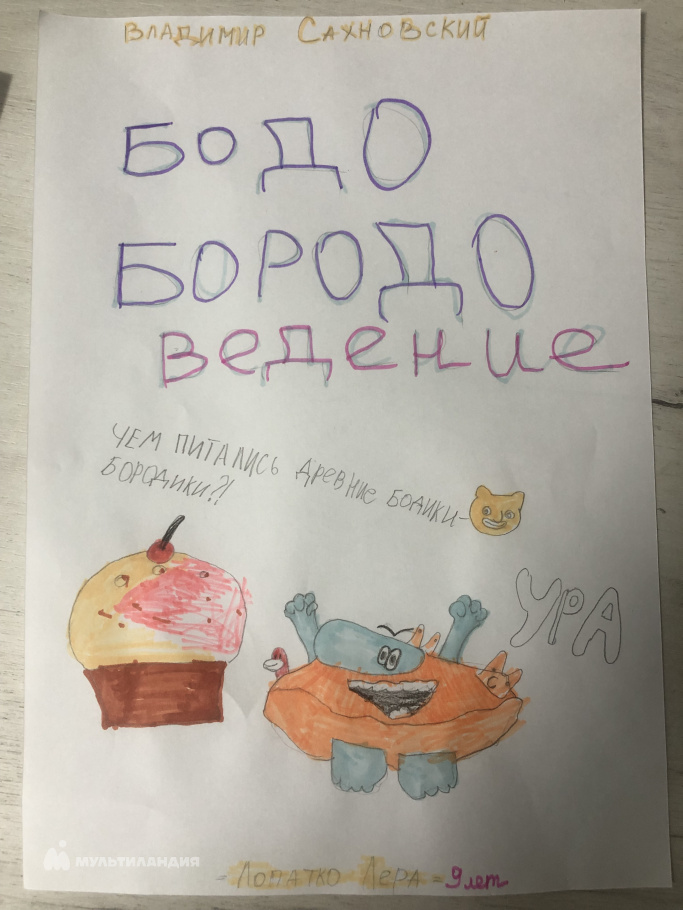 ВЛАДИМИР САХНОВСКИЙ
БОДО
БОРОДО
ведение
ЧЕМ ПИТАЛИСЬ ДРЕВНИЕ БОДИКИ-
БОРОДИКИ?!
УРА
МУЛЬТИЛАНДИЯ
- Лопатко Лера - 9 лет